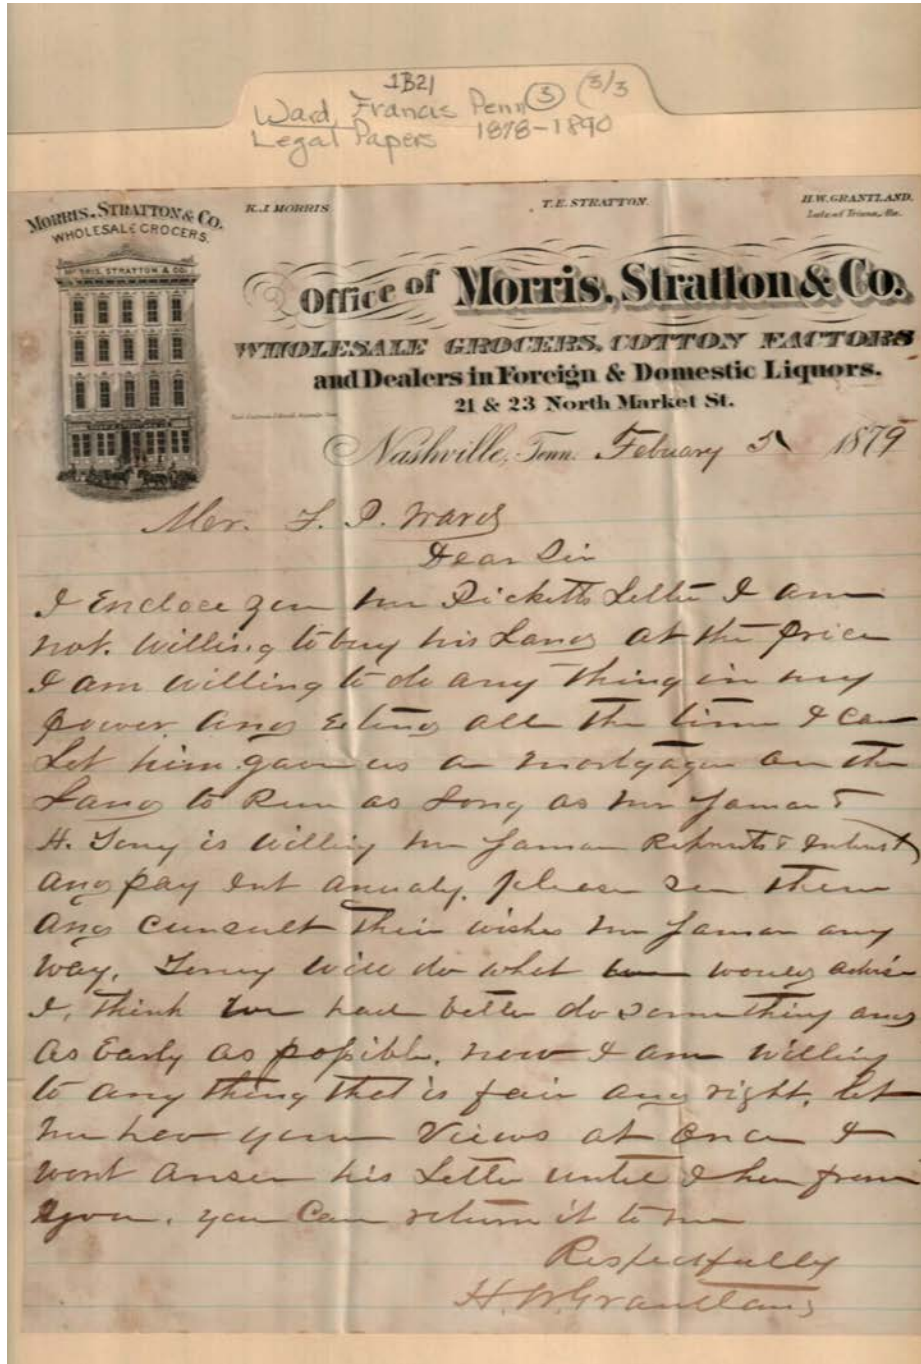 1B21
Ward, Francis Penn ③ (3/3
Legal Papers 1878-1890
MORRIS, STRATTON & CO.
WHOLESALE GROCERS.
MORRIS, STRATTON & CO.
K.J. MORRIS
T.E. STRATTON.
H.W. GRANTLAND.
Late of Triana, Ala.
Office of Morris, Stratton & Co.
WHOLESALE GROCERS, COTTON FACTORS
and Dealers in Foreign & Domestic Liquors.
21 & 23 North Market St.
Nashville, Tenn. February 5 1879
Mr. F. P. Ward
Dear Sir
I Enclose you Mr Ricketts Letter I am
not. willing to buy his Land at the price
I am willing to do any thing in my
power and Extend all the time I can
Let him gave us a mortgage on the
Land to Run as Long as Mr &
H. is willing Mr &
and pay Int anualy. please see them
and cunsult their wishes Mr any
way, will do what would advise
I, think we had better do Something and
as Early as possible. now I am willing
to any thing that is fair and right. let
me hea your Views at Once I
wont anser his Letter until I hea from
you. you can return it to me
Respectfully
H.W. Grantland